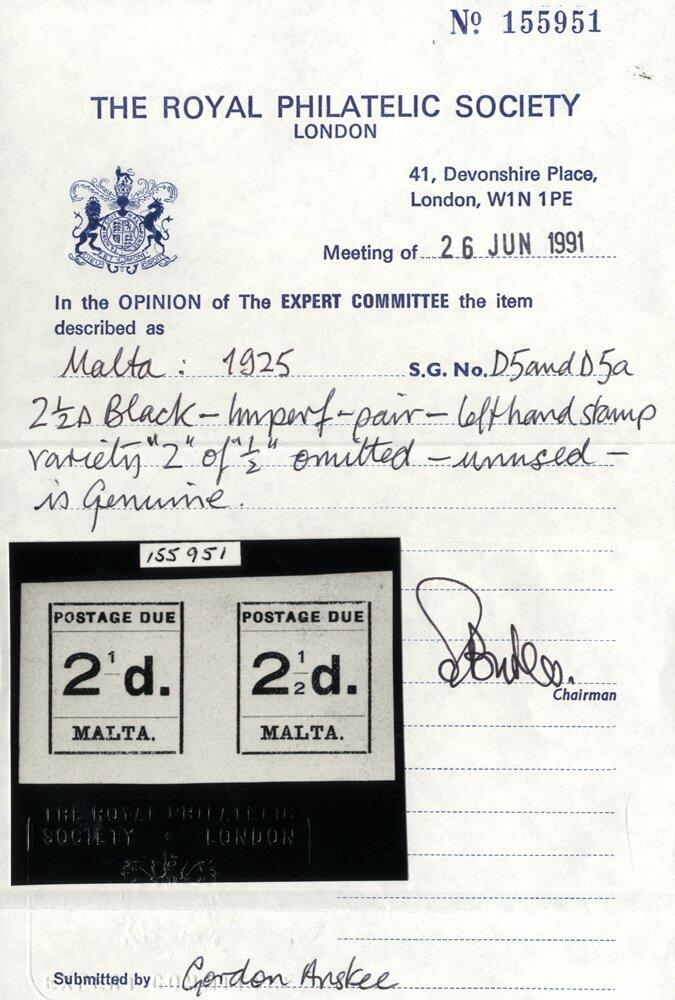 Nº 155951
THE ROYAL PHILATELIC SOCIETY
LONDON
41, Devonshire Place,
London, W1N 1PE
Meeting of 26 JUN 1991
In the OPINION of The EXPERT COMMITTEE the item
described as
Malta : 1925 S.G. No. D5 and D5a
2½d Black – Imperf – pair – left hand stamp
variety "2" of "½" omitted – unused –
is Genuine.
155951
POSTAGE DUE POSTAGE DUE
2 1 d. 2½d.
MALTA. MALTA.
Chairman
THE ROYAL PHILATELIC
SOCIETY LONDON
Submitted by Gordon